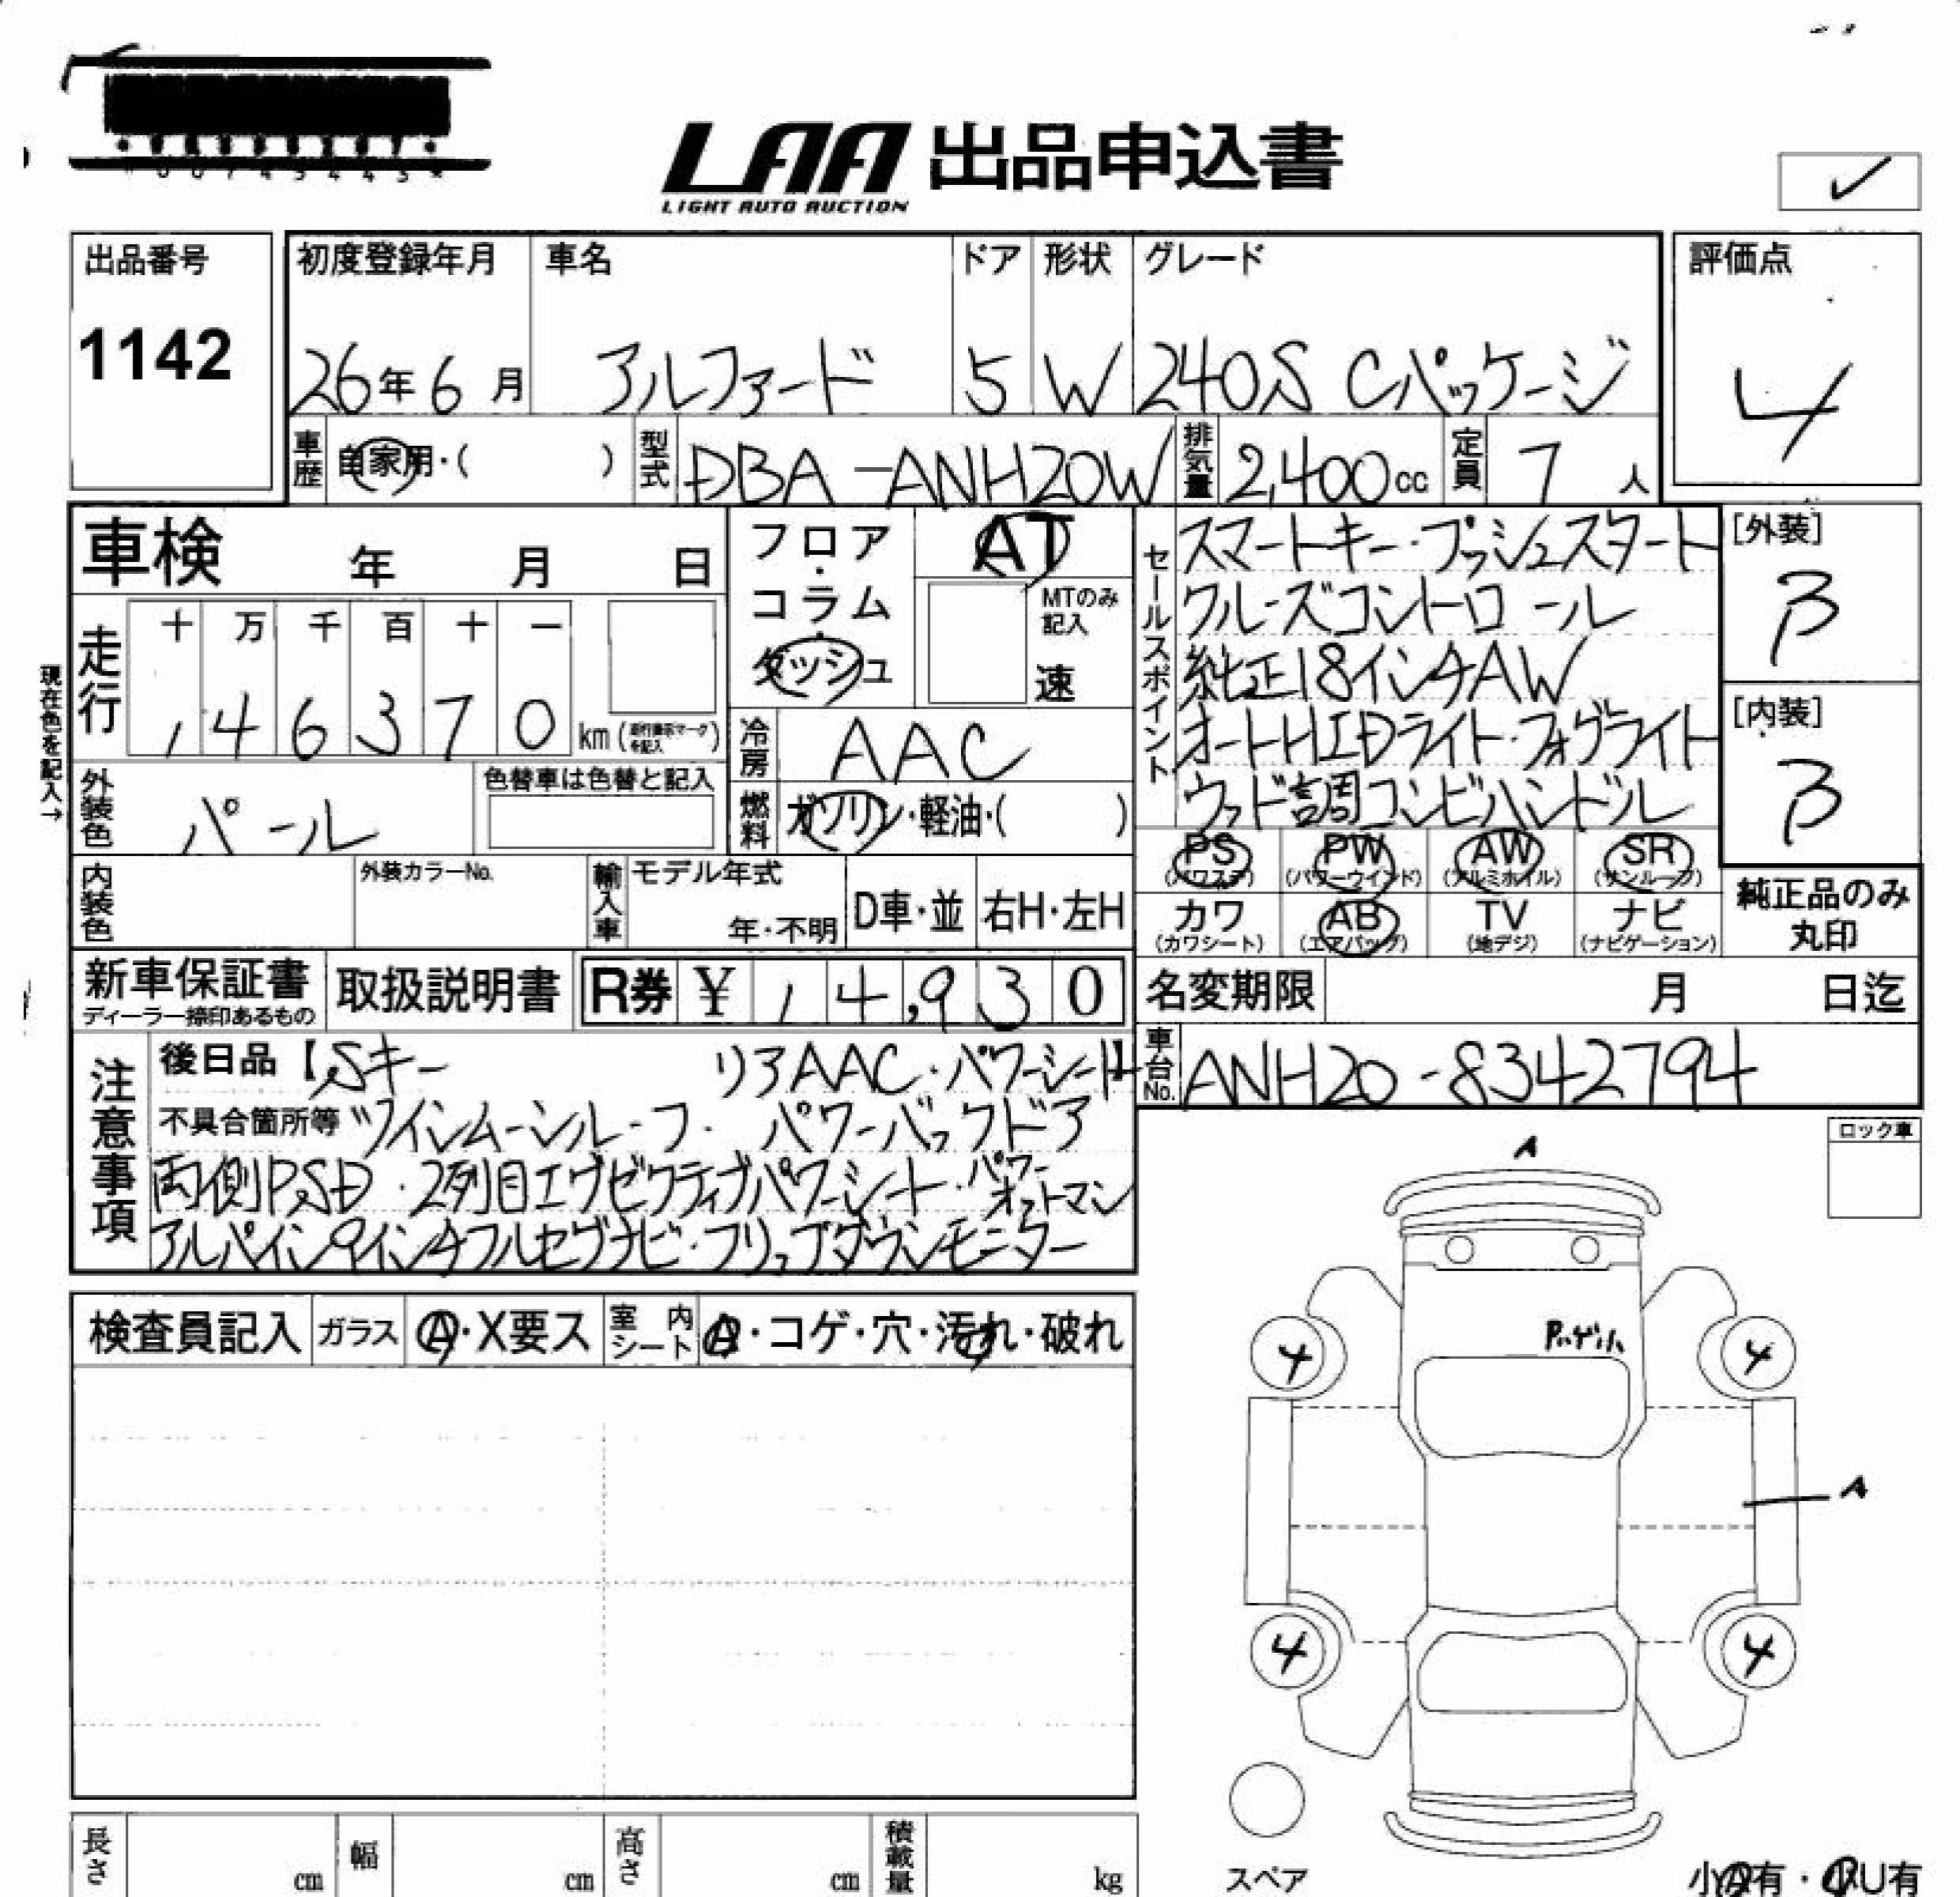 LAA 出品申込書
LIGHT AUTO AUCTION
出品番号
1142
初度登録年月
26年6月
車名
アルファード
ドア
5
形状
W
グレード
240S Cパッケージ
評価点
4
車歴 自家用・( )
型式 DBA-ANH20W
排気量 2,400cc
定員 7人
車検 年 月 日
フロア・コラム・ダッシュ
AT
MTのみ記入
速
セールスポイント
スマートキー・プッシュスタート
クルーズコントロール
純正18インチAW
オートHIDライト・フォグライト
ウッド調コンビハンドル
[外装]
B
[内装]
B
現在色を記入→
走行
十 万 千 百 十 一
146370 km
冷房 AAC
外装色 パール
色替車は色替と記入
燃料 ガソリン・軽油・( )
PS (パワステ)
PW (パワーウインド)
AW (アルミホイル)
SR (サンルーフ)
カワ (カワシート)
AB (エアバッグ)
TV (地デジ)
ナビ (ナビゲーション)
純正品のみ
丸印
内装色
外装カラーNo.
輸入車
モデル年式
年・不明
D車・並
右H・左H
新車保証書
ディーラー捺印あるもの
取扱説明書
R券 ¥ 14,930
名変期限 月 日迄
車台No. ANH20-8342794
注意事項
後日品【Sキー リアAAC・パワーシート】
不具合箇所等 ツインムーンルーフ・パワーバックドア
両側PSD・2列目エグゼクティブパワーシート・パワーオットマン
アルパイン9インチフルセグナビ・フリップダウンモニター
ロック車
A
検査員記入
ガラス A・X要ス
室内シート A・コゲ・穴・汚れ・破れ
4
4
A
4
4
長さ cm
幅 cm
高さ cm
積載量 kg
スペア
小A有・小U有